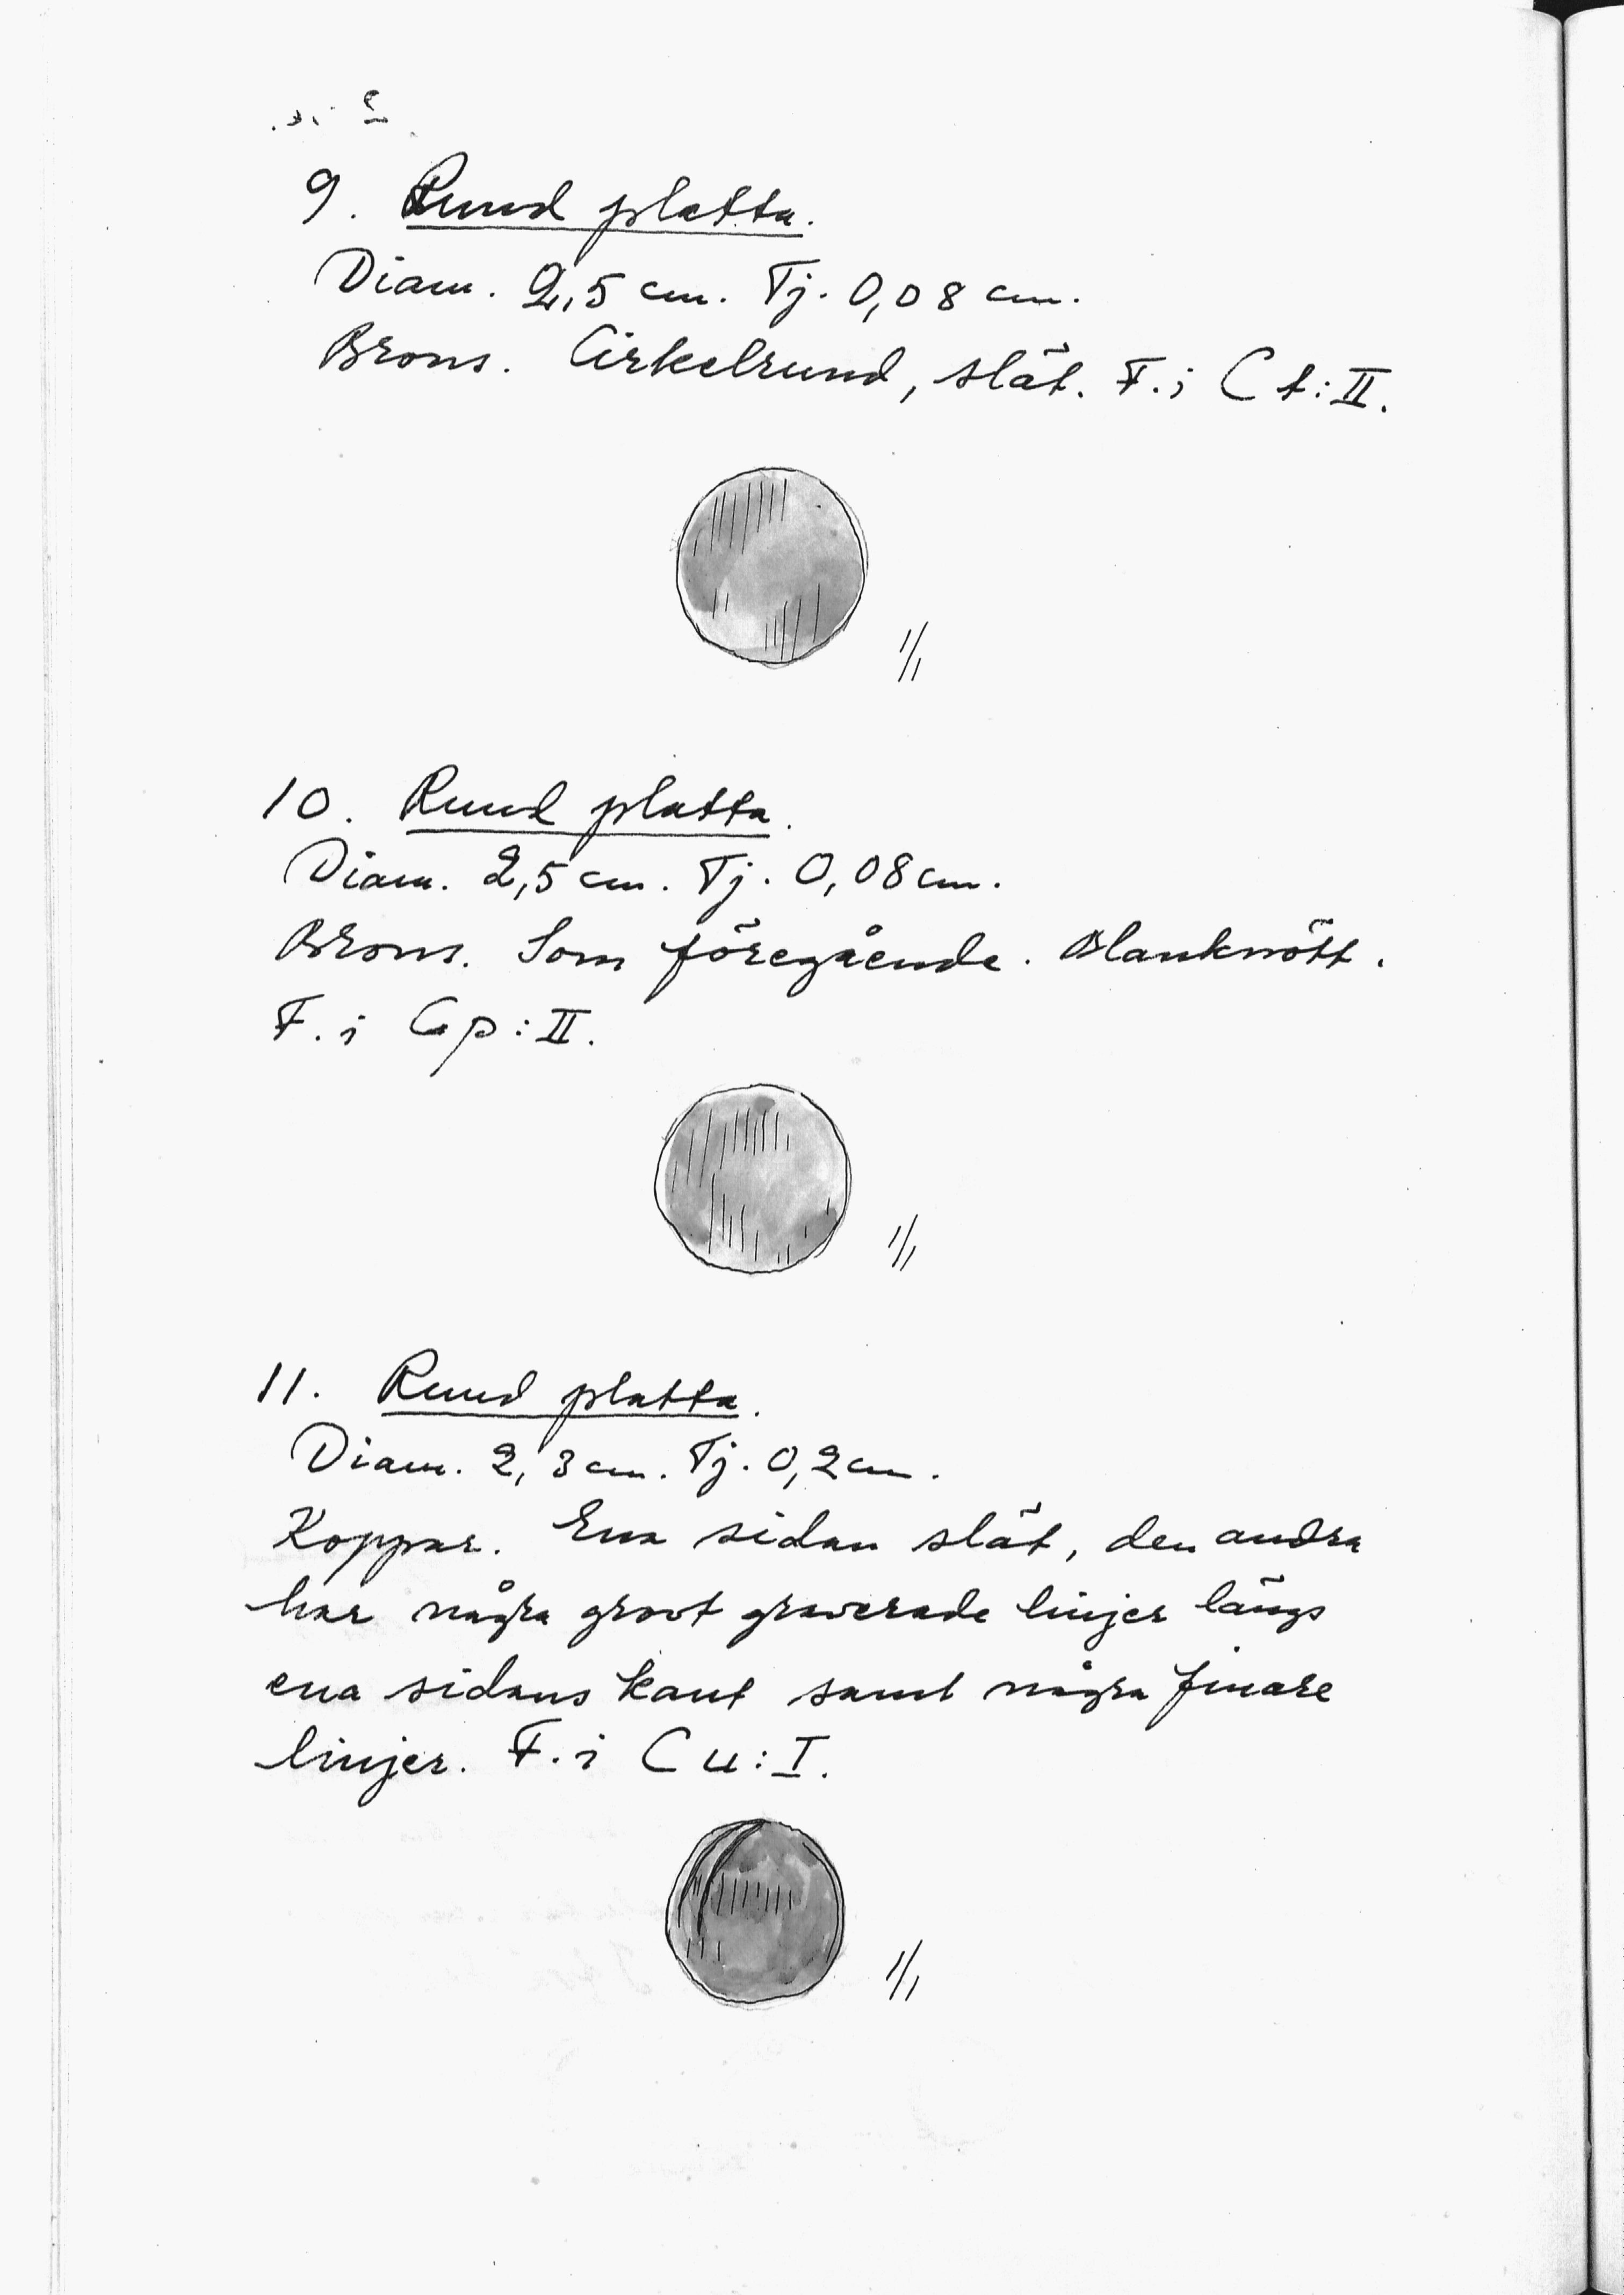 9. Rund platta.
Diam. 2,5 cm. Tj. 0,08 cm.
Brons. Cirkelrund, slät. F. i C t:II.
1/1
10. Rund platta.
Diam. 2,5 cm. Tj. 0,08 cm.
Brons. Som föregående. Blanknött.
F. i C p:II.
1/1
11. Rund platta.
Diam. 2,3 cm. Tj. 0,2 cm.
Koppar. Ena sidan slät, den andra
har några grovt graverade linjer längs
ena sidans kant samt några finare
linjer. F. i C u:I.
1/1